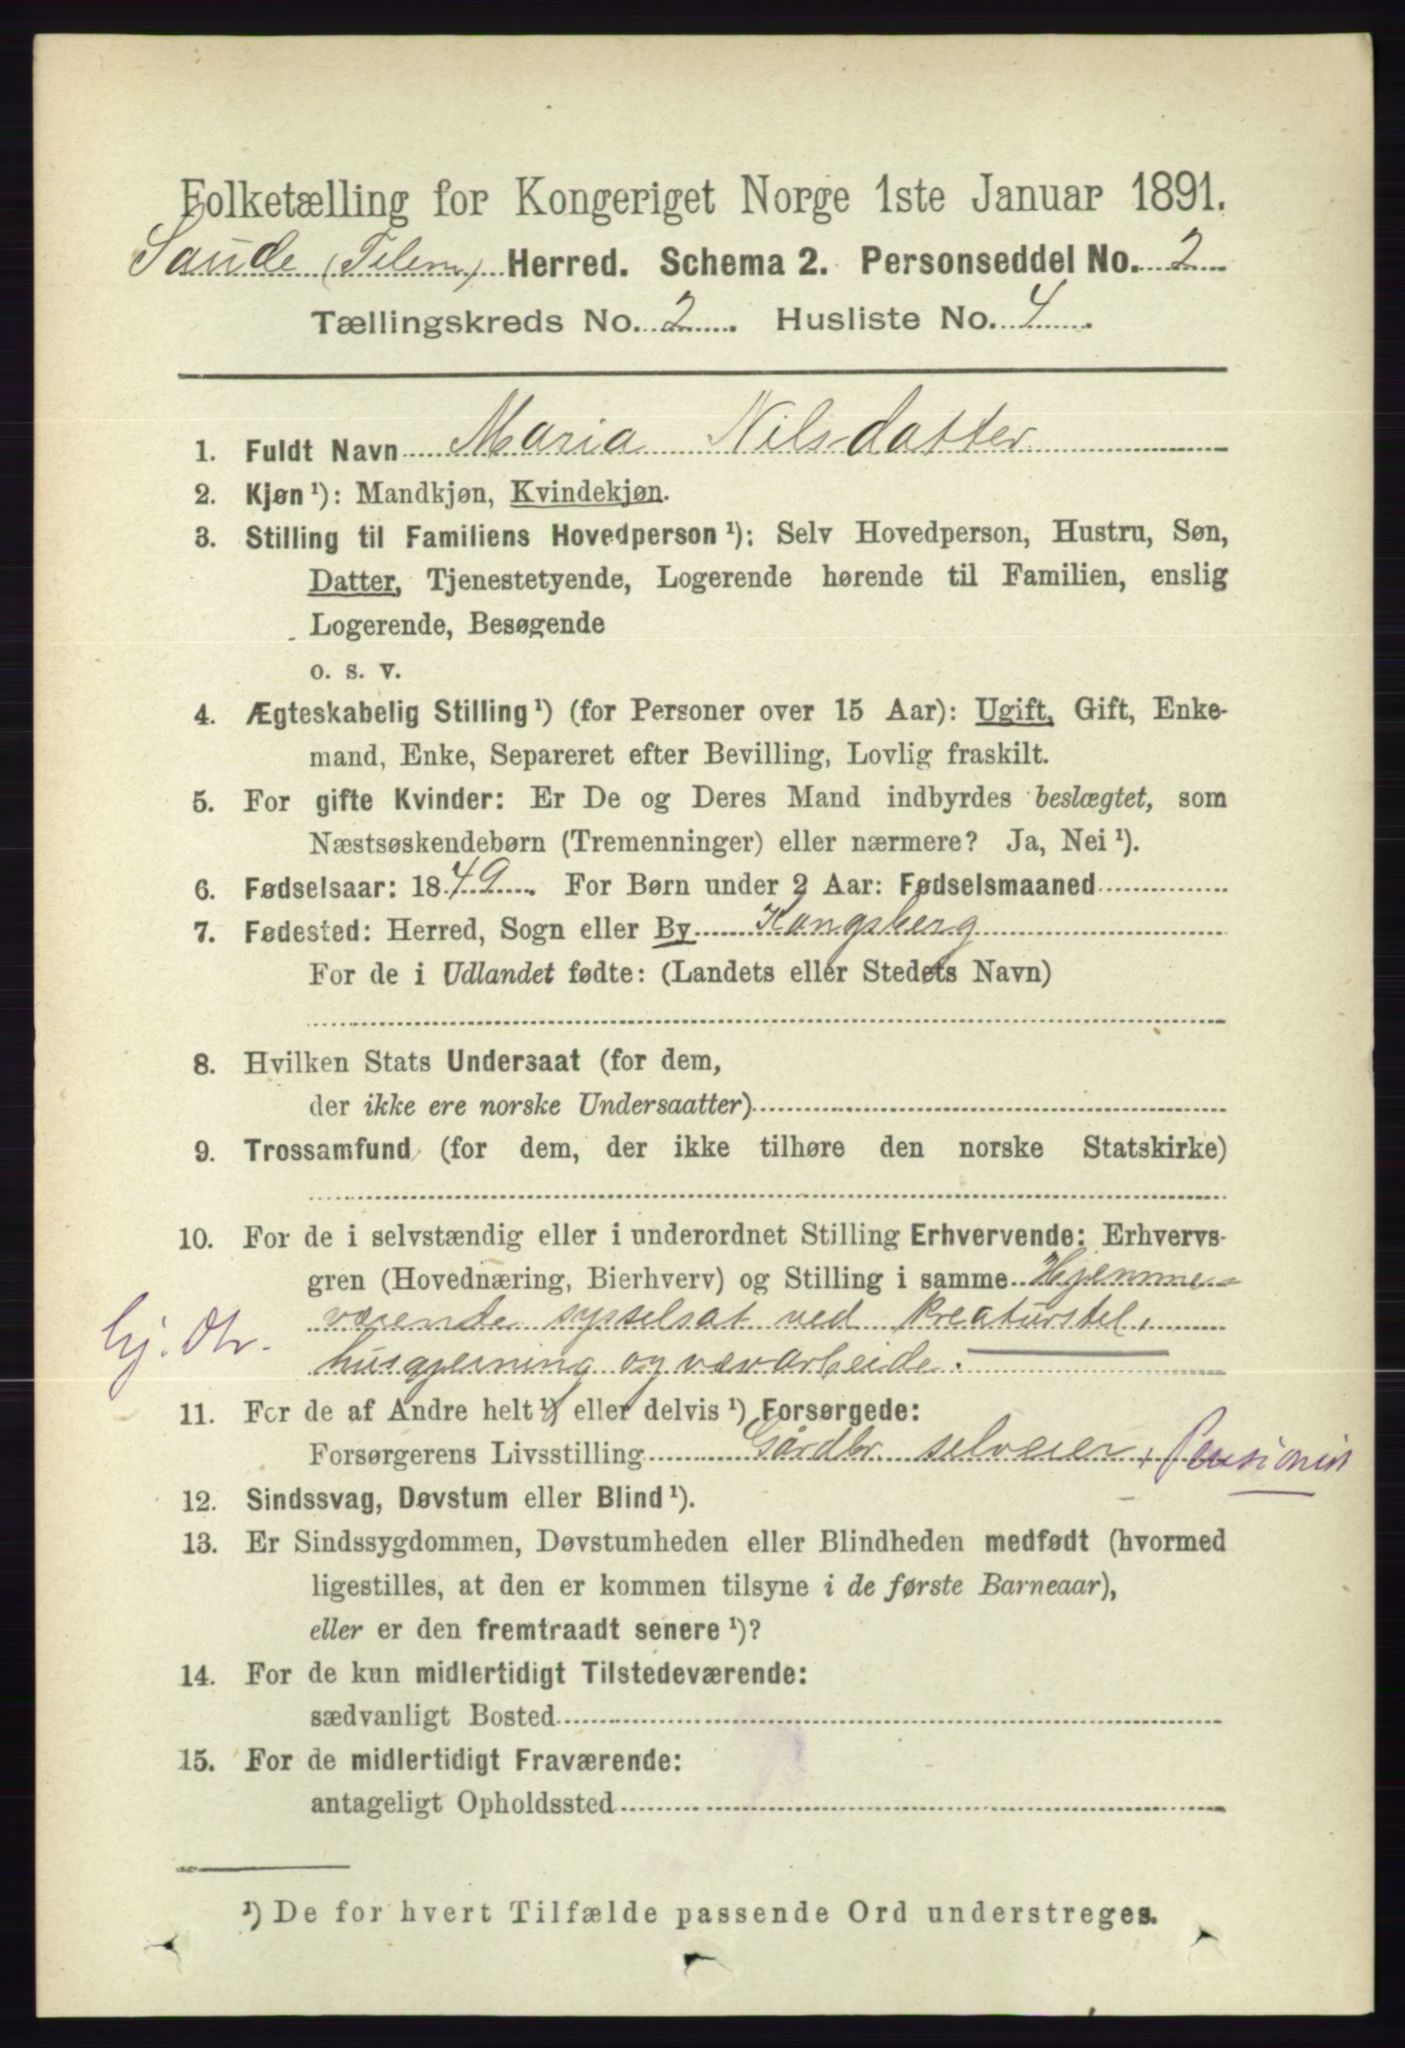 Folketælling for Kongeriget Norge 1ste Januar 1891.
Saude (Telem.) Herred. Schema 2. Personseddel No. 2
Tællingskreds No. 2. Husliste No. 4.
1. Fuldt Navn Maria Nilsdatter
2. Kjøn ¹): Mandkjøn, Kvindekjøn.
3. Stilling til Familiens Hovedperson ¹): Selv Hovedperson, Hustru, Søn,
Datter, Tjenestetyende, Logerende hørende til Familien, enslig
Logerende, Besøgende
o. s. v.
4. Ægteskabelig Stilling ¹) (for Personer over 15 Aar): Ugift, Gift, Enke-
mand, Enke, Separeret efter Bevilling, Lovlig fraskilt.
5. For gifte Kvinder: Er De og Deres Mand indbyrdes beslægtet, som
Næstsøskendebørn (Tremenninger) eller nærmere? Ja, Nei ¹).
6. Fødselsaar: 1849. For Børn under 2 Aar: Fødselsmaaned
7. Fødested: Herred, Sogn eller By Kongsberg
For de i Udlandet fødte: (Landets eller Stedets Navn)
8. Hvilken Stats Undersaat (for dem,
der ikke ere norske Undersaatter)
9. Trossamfund (for dem, der ikke tilhøre den norske Statskirke)
10. For de i selvstændig eller i underordnet Stilling Erhvervende: Erhvervs-
gren (Hovednæring, Bierhverv) og Stilling i samme Hjemme-
værende sysselsat ved kreaturstel,
hj. Dtr.
husgjerning og vævarbeide.
11. For de af Andre helt ¹) eller delvis ¹) Forsørgede:
Forsørgerens Livsstilling Gårdbr. selveier, Pensionist
12. Sindssvag, Døvstum eller Blind ¹).
13. Er Sindssygdommen, Døvstumheden eller Blindheden medfødt (hvormed
ligestilles, at den er kommen tilsyne i de første Barneaar),
eller er den fremtraadt senere ¹)?
14. For de kun midlertidigt Tilstedeværende:
sædvanligt Bosted
15. For de midlertidigt Fraværende:
antageligt Opholdssted
¹) De for hvert Tilfælde passende Ord understreges.